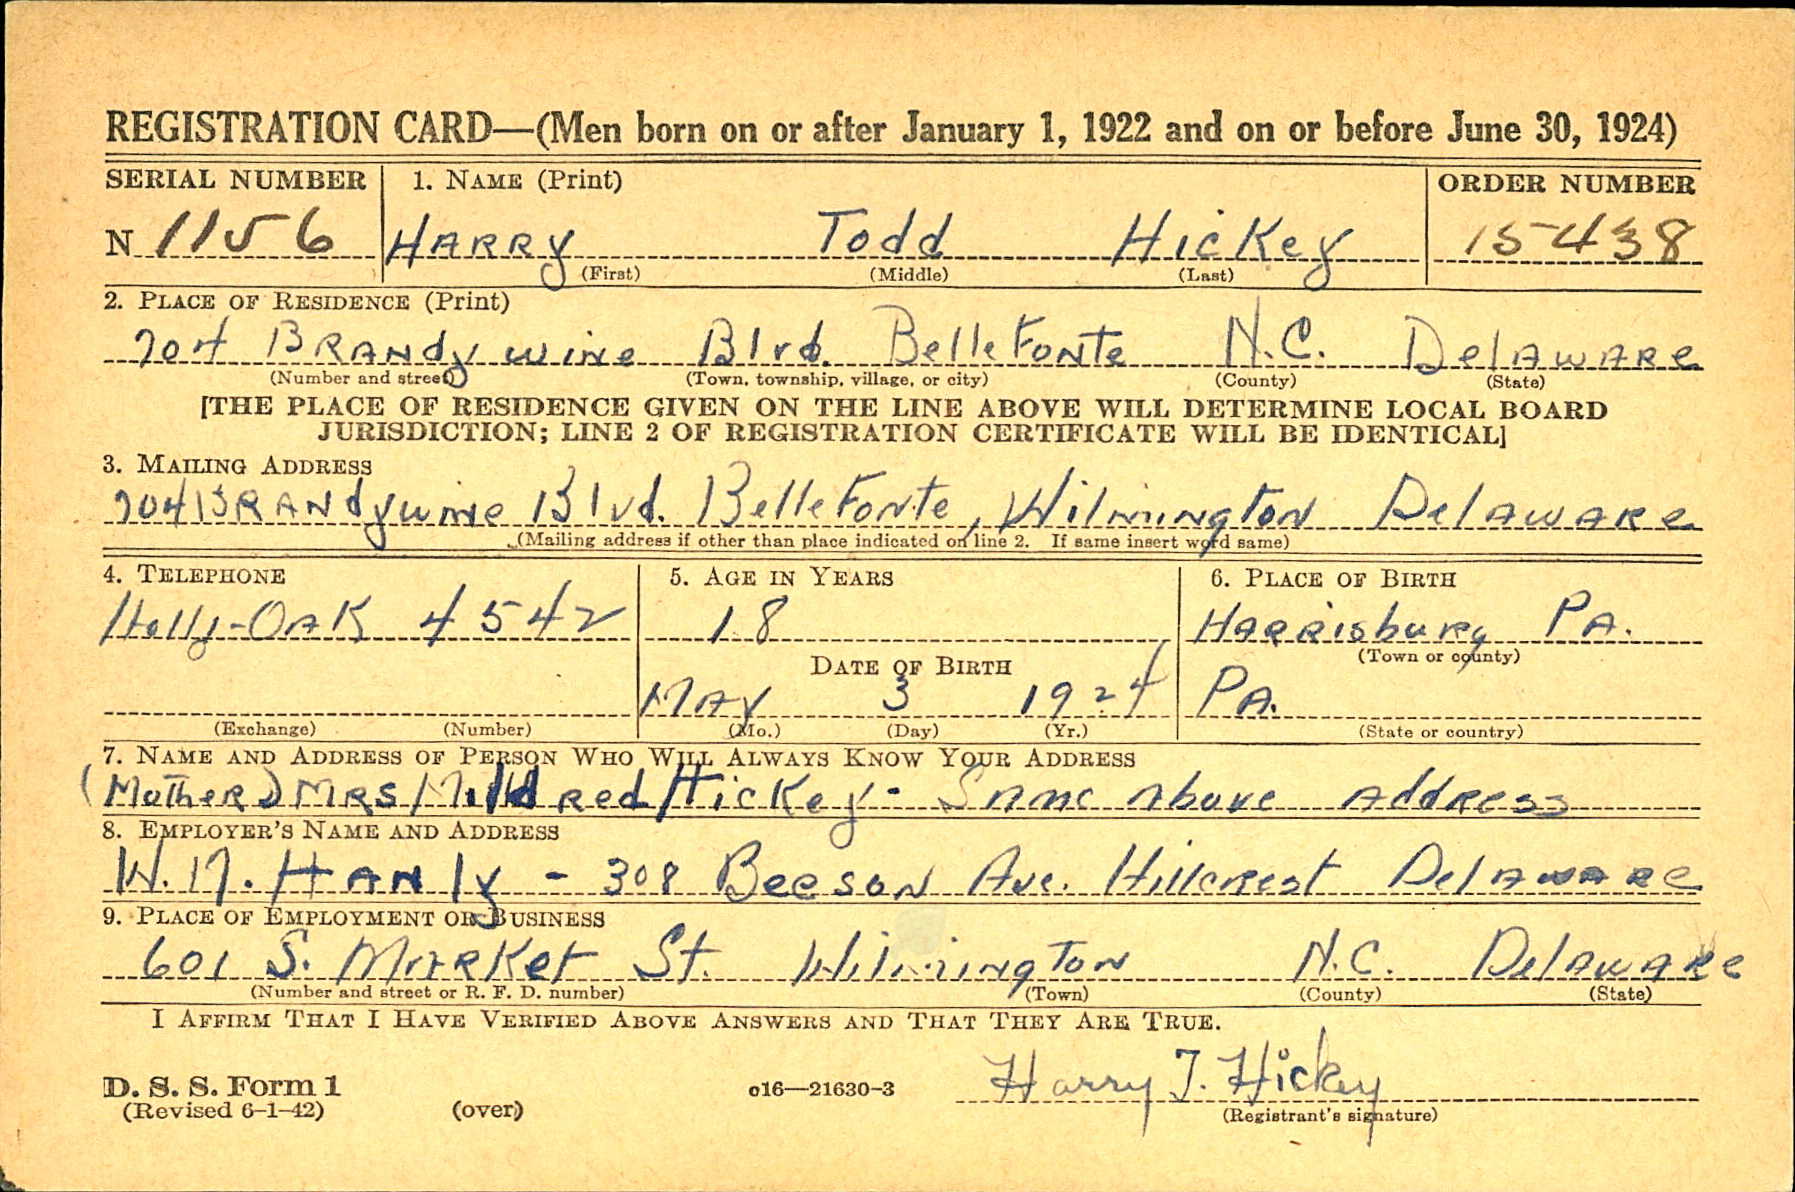 REGISTRATION CARD—(Men born on or after January 1, 1922 and on or before June 30, 1924)
SERIAL NUMBER 1. NAME (Print) ORDER NUMBER
N 1156 HARRy Todd HicKey 15438
(First) (Middle) (Last)
2. PLACE OF RESIDENCE (Print)
704 BRANdywine Blvd. BelleFonte N.C. DelAWARe
(Number and street) (Town, township, village, or city) (County) (State)
[THE PLACE OF RESIDENCE GIVEN ON THE LINE ABOVE WILL DETERMINE LOCAL BOARD
JURISDICTION; LINE 2 OF REGISTRATION CERTIFICATE WILL BE IDENTICAL]
3. MAILING ADDRESS
704 BRANdywine Blvd. BelleFonte, Wilmington DelAWARe
(Mailing address if other than place indicated on line 2. If same insert word same)
4. TELEPHONE 5. AGE IN YEARS 6. PLACE OF BIRTH
Holly-OAK 4542 18 HARRisburg PA.
(Town or county)
DATE OF BIRTH
MAy 3 1924 PA.
(Exchange) (Number) (Mo.) (Day) (Yr.) (State or country)
7. NAME AND ADDRESS OF PERSON WHO WILL ALWAYS KNOW YOUR ADDRESS
(MotheR) MRS MildRed HicKey - SAme Above AddRess
8. EMPLOYER'S NAME AND ADDRESS
W. M. HANly - 308 BeesoN Ave. Hillcrest DelAwARe
9. PLACE OF EMPLOYMENT OR BUSINESS
601 S. MARKet St. WilmingToN N.C. DelAwARe
(Number and street or R. F. D. number) (Town) (County) (State)
I AFFIRM THAT I HAVE VERIFIED ABOVE ANSWERS AND THAT THEY ARE TRUE.
Harry T. Hickey
D. S. S. Form 1
(Revised 6-1-42) (over) c16—21630-3 (Registrant's signature)